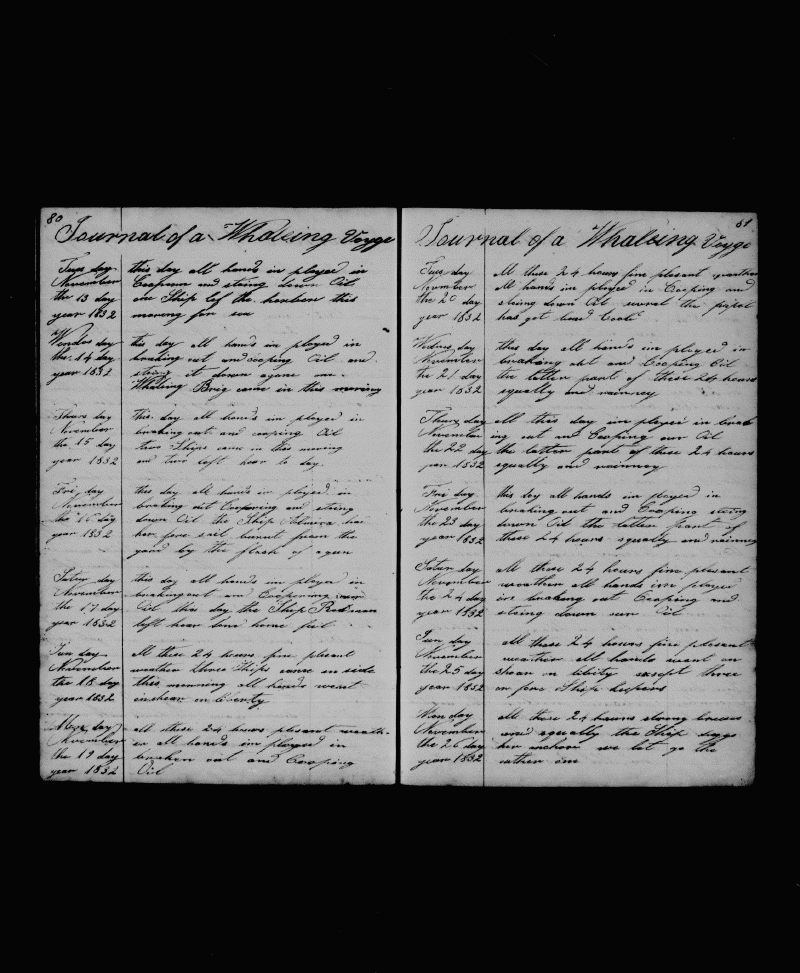 80
Journal of a Whaleing Voyge
Tues day this day all hands in ployed in
November Cooperin and stoing down Oil
the 13 day one Ship lef the harbor this
year 1832 morning for sea
Wendes day this day all hands in ployed in
the 14 day braking out and cooping Oil and
year 1832 stoing it down agane one
Whaleing Brig came in this morning
Thurs day this day all hands in ployed in
November braking out and cooping Oil
the 15 day two Ships came in this morning
year 1832 and two left hear to day
Fri day this day all hands in ployed in
November braking out Coopering and stoing
the 16 day down Oil the Ship has
year 1832 her fore sail burnt from the
yard by the flash of a gun
Satur day this day all hands in ployed in
November braking out and Coopering
the 17 day Oil this day the Ship
year 1832 left hear bound home full
Sun day All these 24 hours fine plesent
November weather three Ships came in side
the 18 day this morning all hands went
year 1832 on shear on Liberty
Mon day all these 24 hours plesent weath
November er all hands in ployed in
the 19 day braken out and Cooping
year 1832 Oil
81
Journal of a Whaleing Voyge
Tues day All these 24 hours fine plesant weather
November All hands in ployed in Cooping and
the 20 day stoing down Oil
year 1832 has got
Wednes day this day all hands im ployed in
November braking out and Cooping Oil
the 21 day the latter part of these 24 hours
year 1832 squally and rainney
Thurs day all this day im ployed in brak
November ing out and Cooping our Oil
the 22 day the latter part of these 24 hours
year 1832 squally and rainney
Fri day this day all hands im ployed in
November braking out and Cooping stoing
the 23 day down Oil the latter part of
year 1832 these 24 hours squally and rainney
Satur day all these 24 hours fine plesant
November weather all hands im ployed
the 24 day in braking out Cooping and
year 1832 stoing down our Oil
Sun day all these 24 hours fine plesant
November weather all hands went on
the 25 day shoar on libity except three
year 1832 or fore Ship keepers
Mon day all these 24 hours strong breeses
November and squally the Ship
the 26 day her anchor we let go the
year 1832 other one